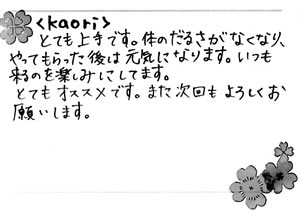 <kaori>
とても上手です。体のだるさがなくなり、
やってもらった後は元気になります。いつも
来るのを楽しみにしてます。
とてもオススメです。また次回もよろしくお
願いします。